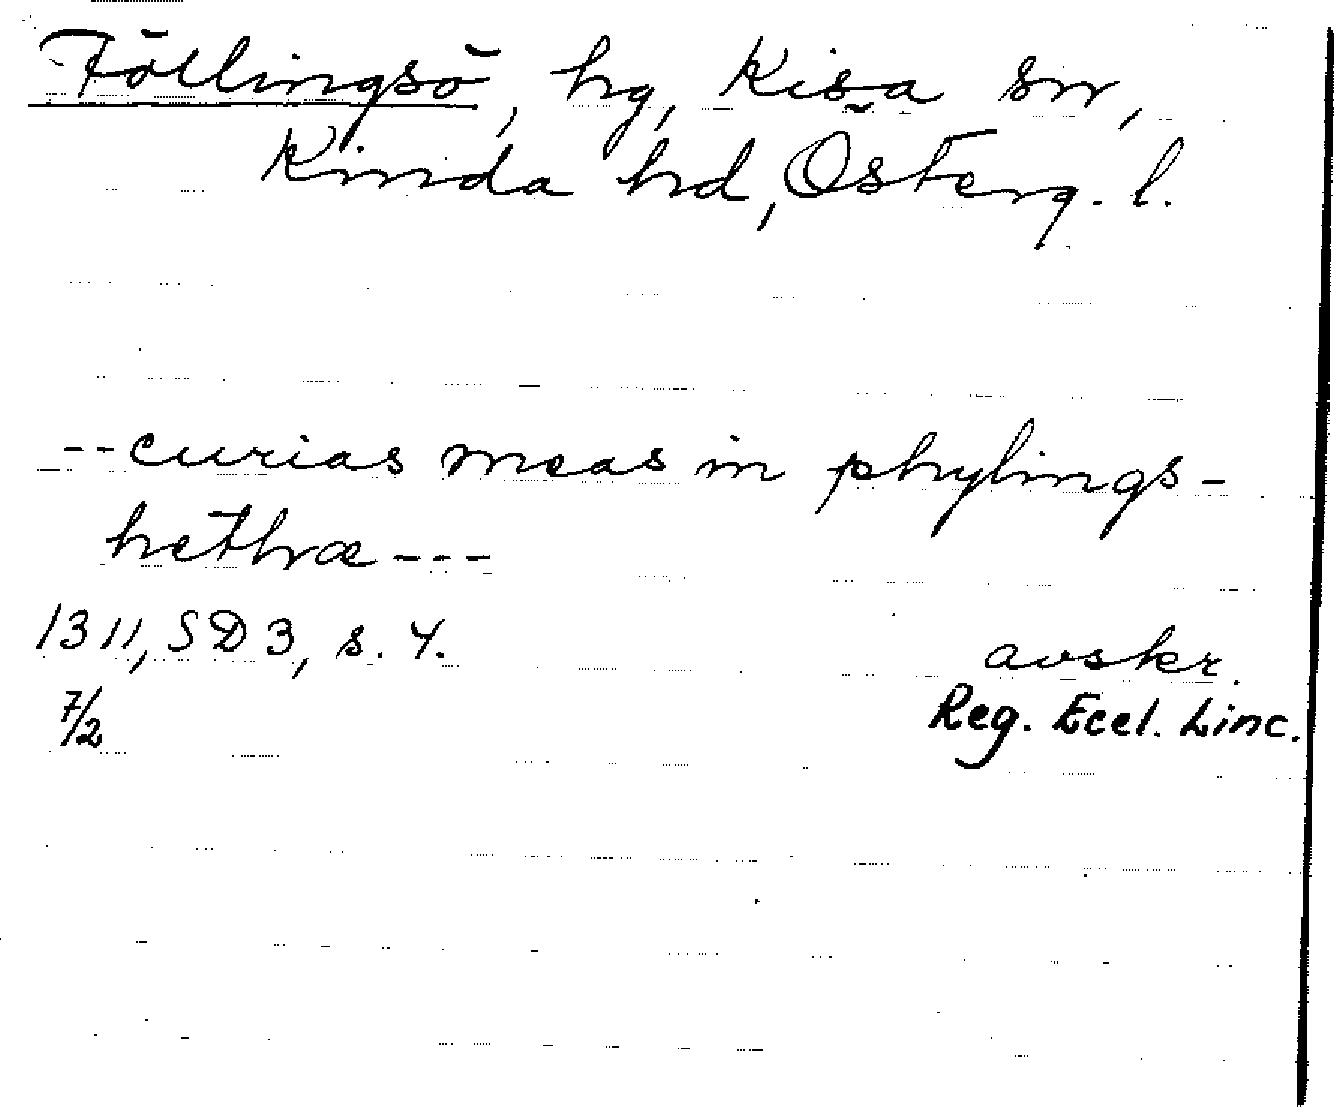 Föllingsö, hg, Kisa sn,
Kinda hd, Österg. l.
--curias meas in phylings-
hethræ---
1311, SD 3, s. 7.
7/2
avskr.
Reg. Eccl. Linc.